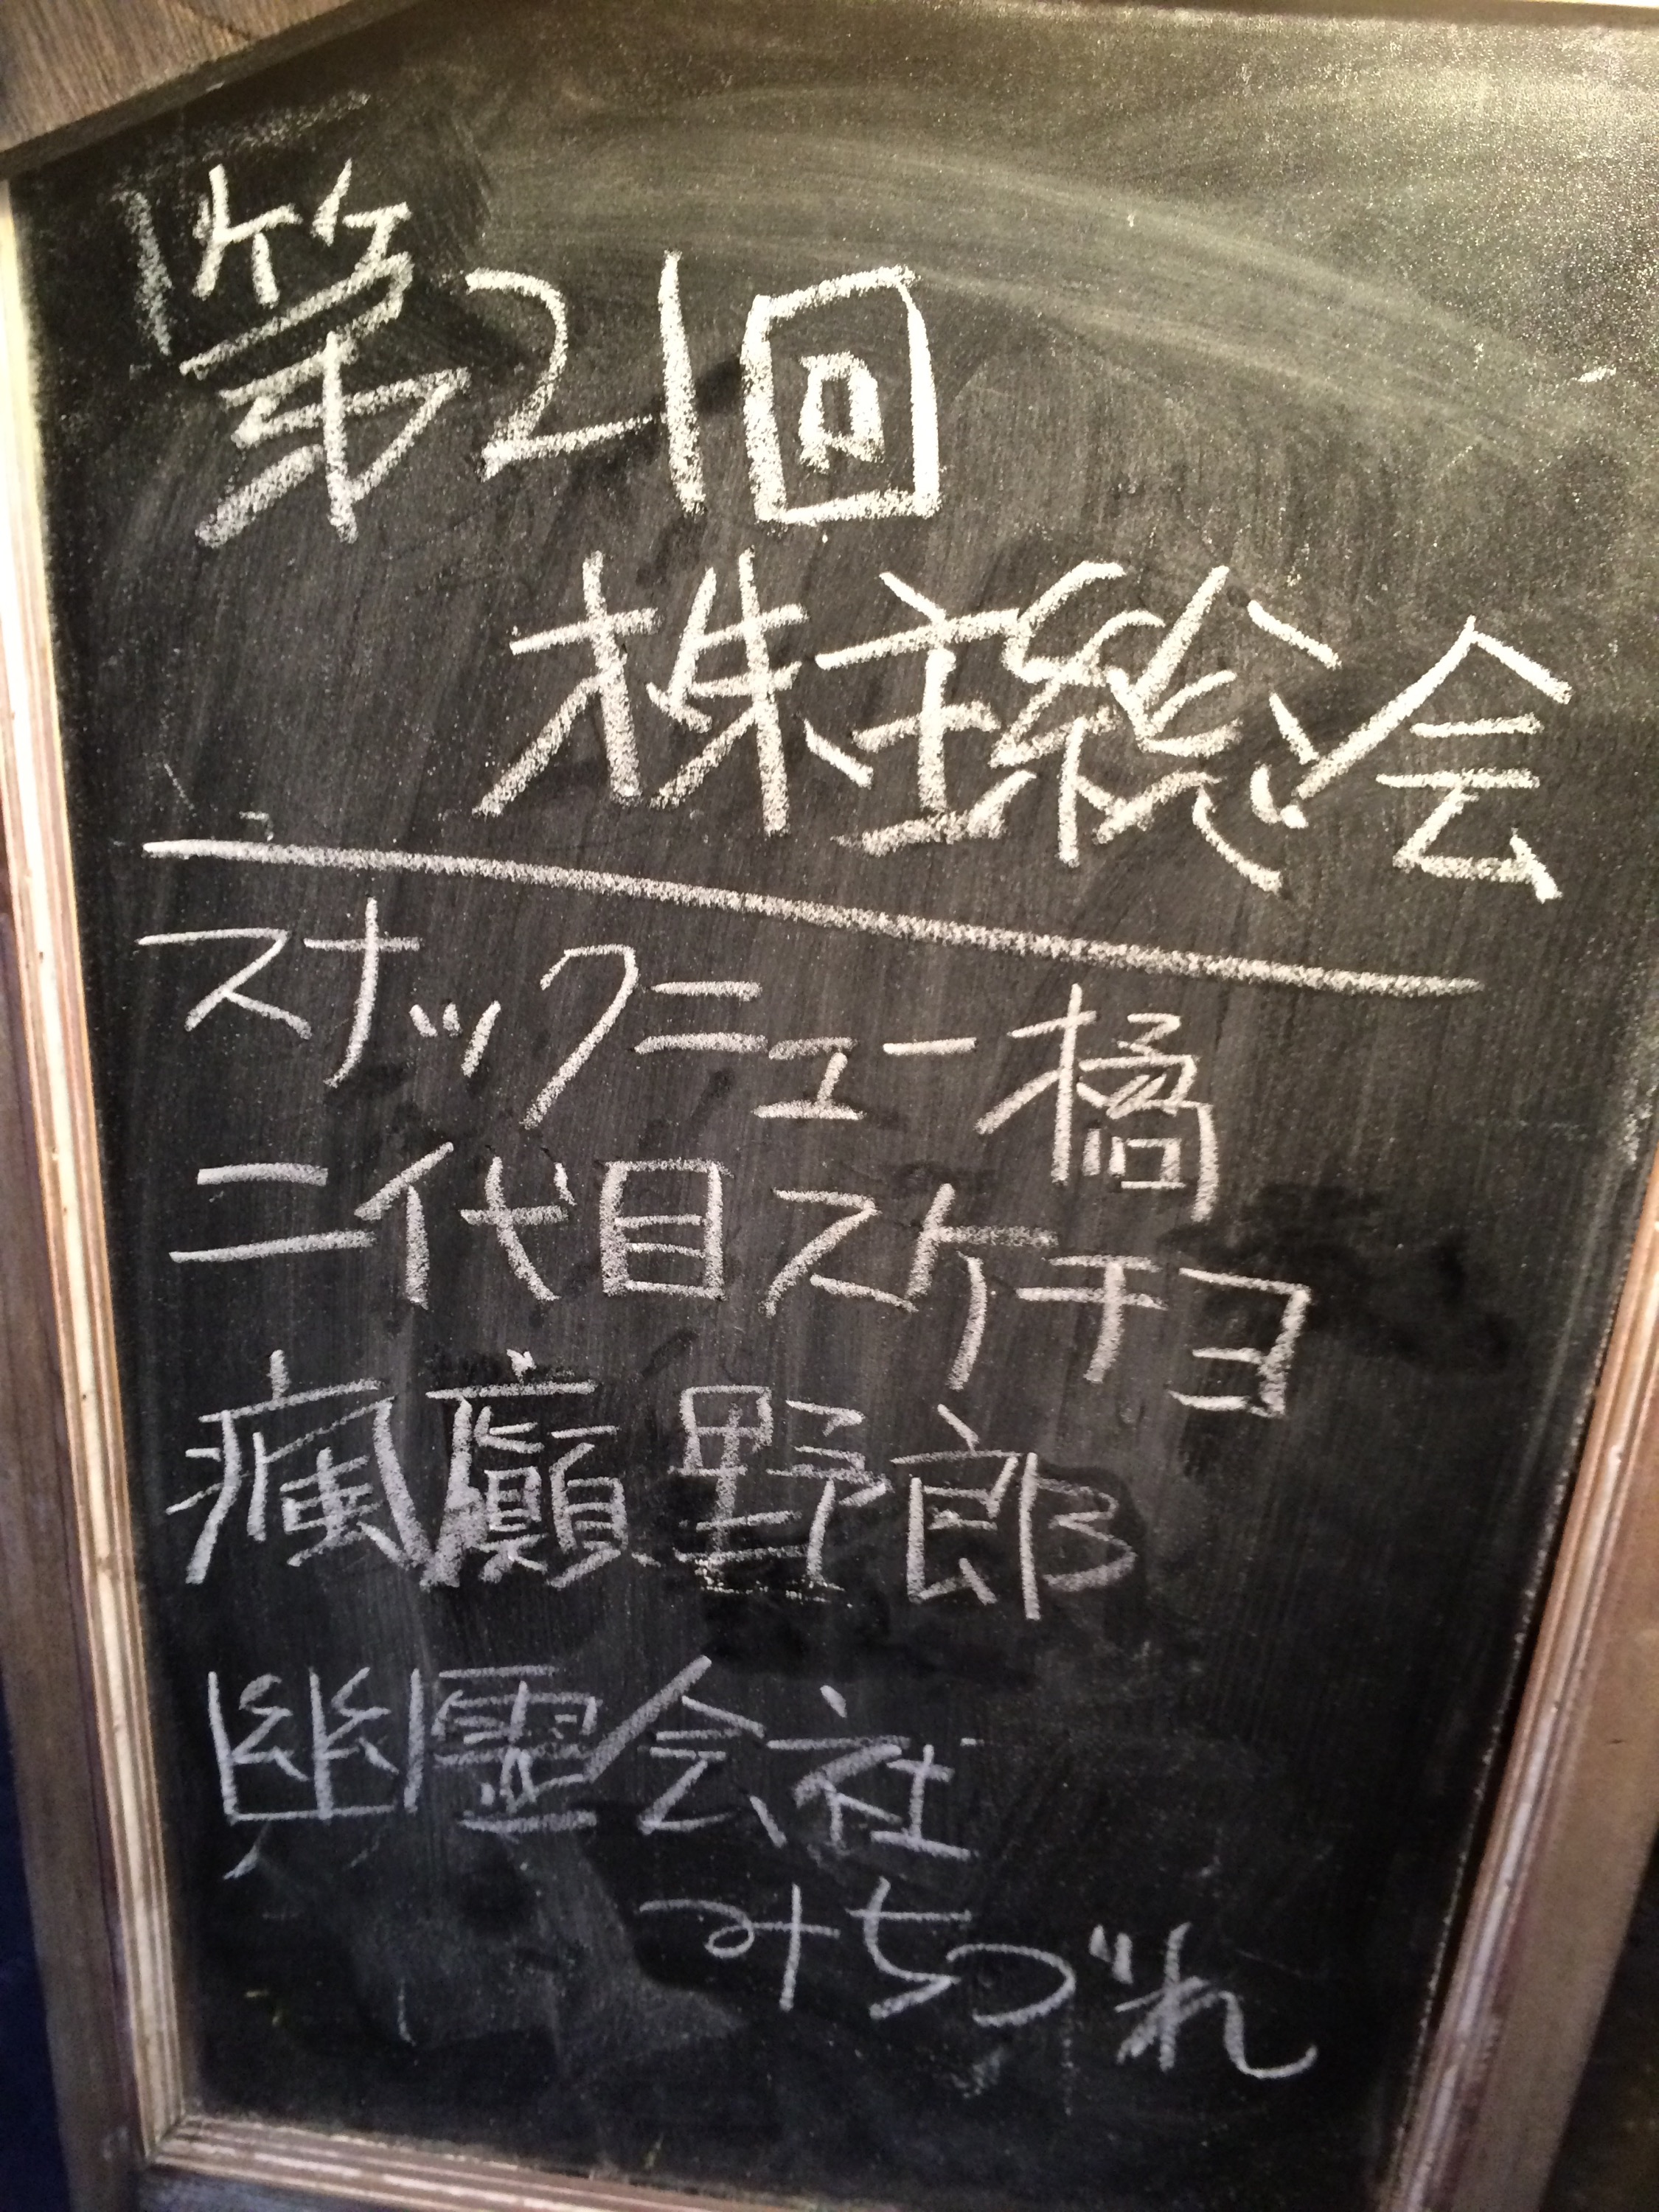 第21回
株主総会
スナックニュー橘
二代目スケチヨ
瘋癲野郎
幽霊会社
みちづれ